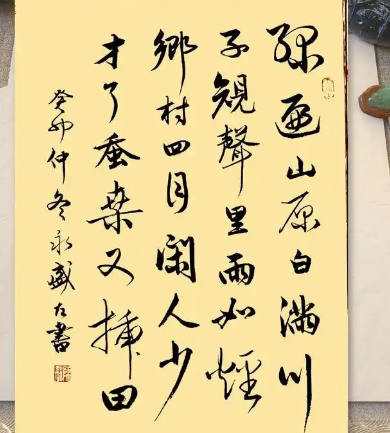 绿遍山原白满川
子規聲里雨如煙
鄉村四月闲人少
才了蚕桒又插田
癸卯仲冬永盛左書